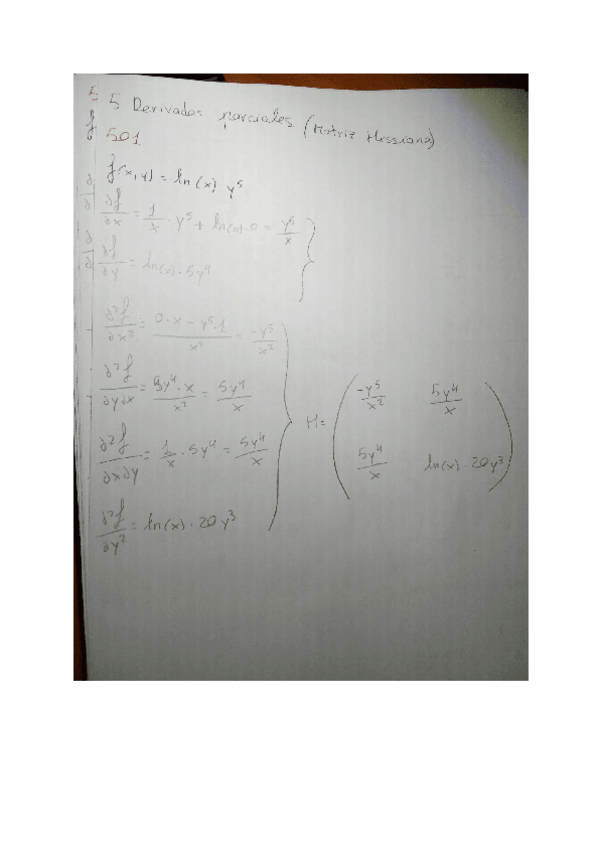 5 Derivadas parciales (Matriz Hessiana)
501
f(x,y) = ln(x) y⁵
∂f/∂x = 1/x · y⁵ + ln(x)·0 = y⁵/x
∂f/∂y = ln(x)·5y⁴
∂²f/∂x² = (0·x − y⁵·1)/x² = −y⁵/x²
∂²f/∂y∂x = 5y⁴·x/x² = 5y⁴/x
H = ( −y⁵/x² 5y⁴/x
5y⁴/x ln(x)·20y³ )
∂²f/∂x∂y = 1/x · 5y⁴ = 5y⁴/x
∂²f/∂y² = ln(x)·20y³